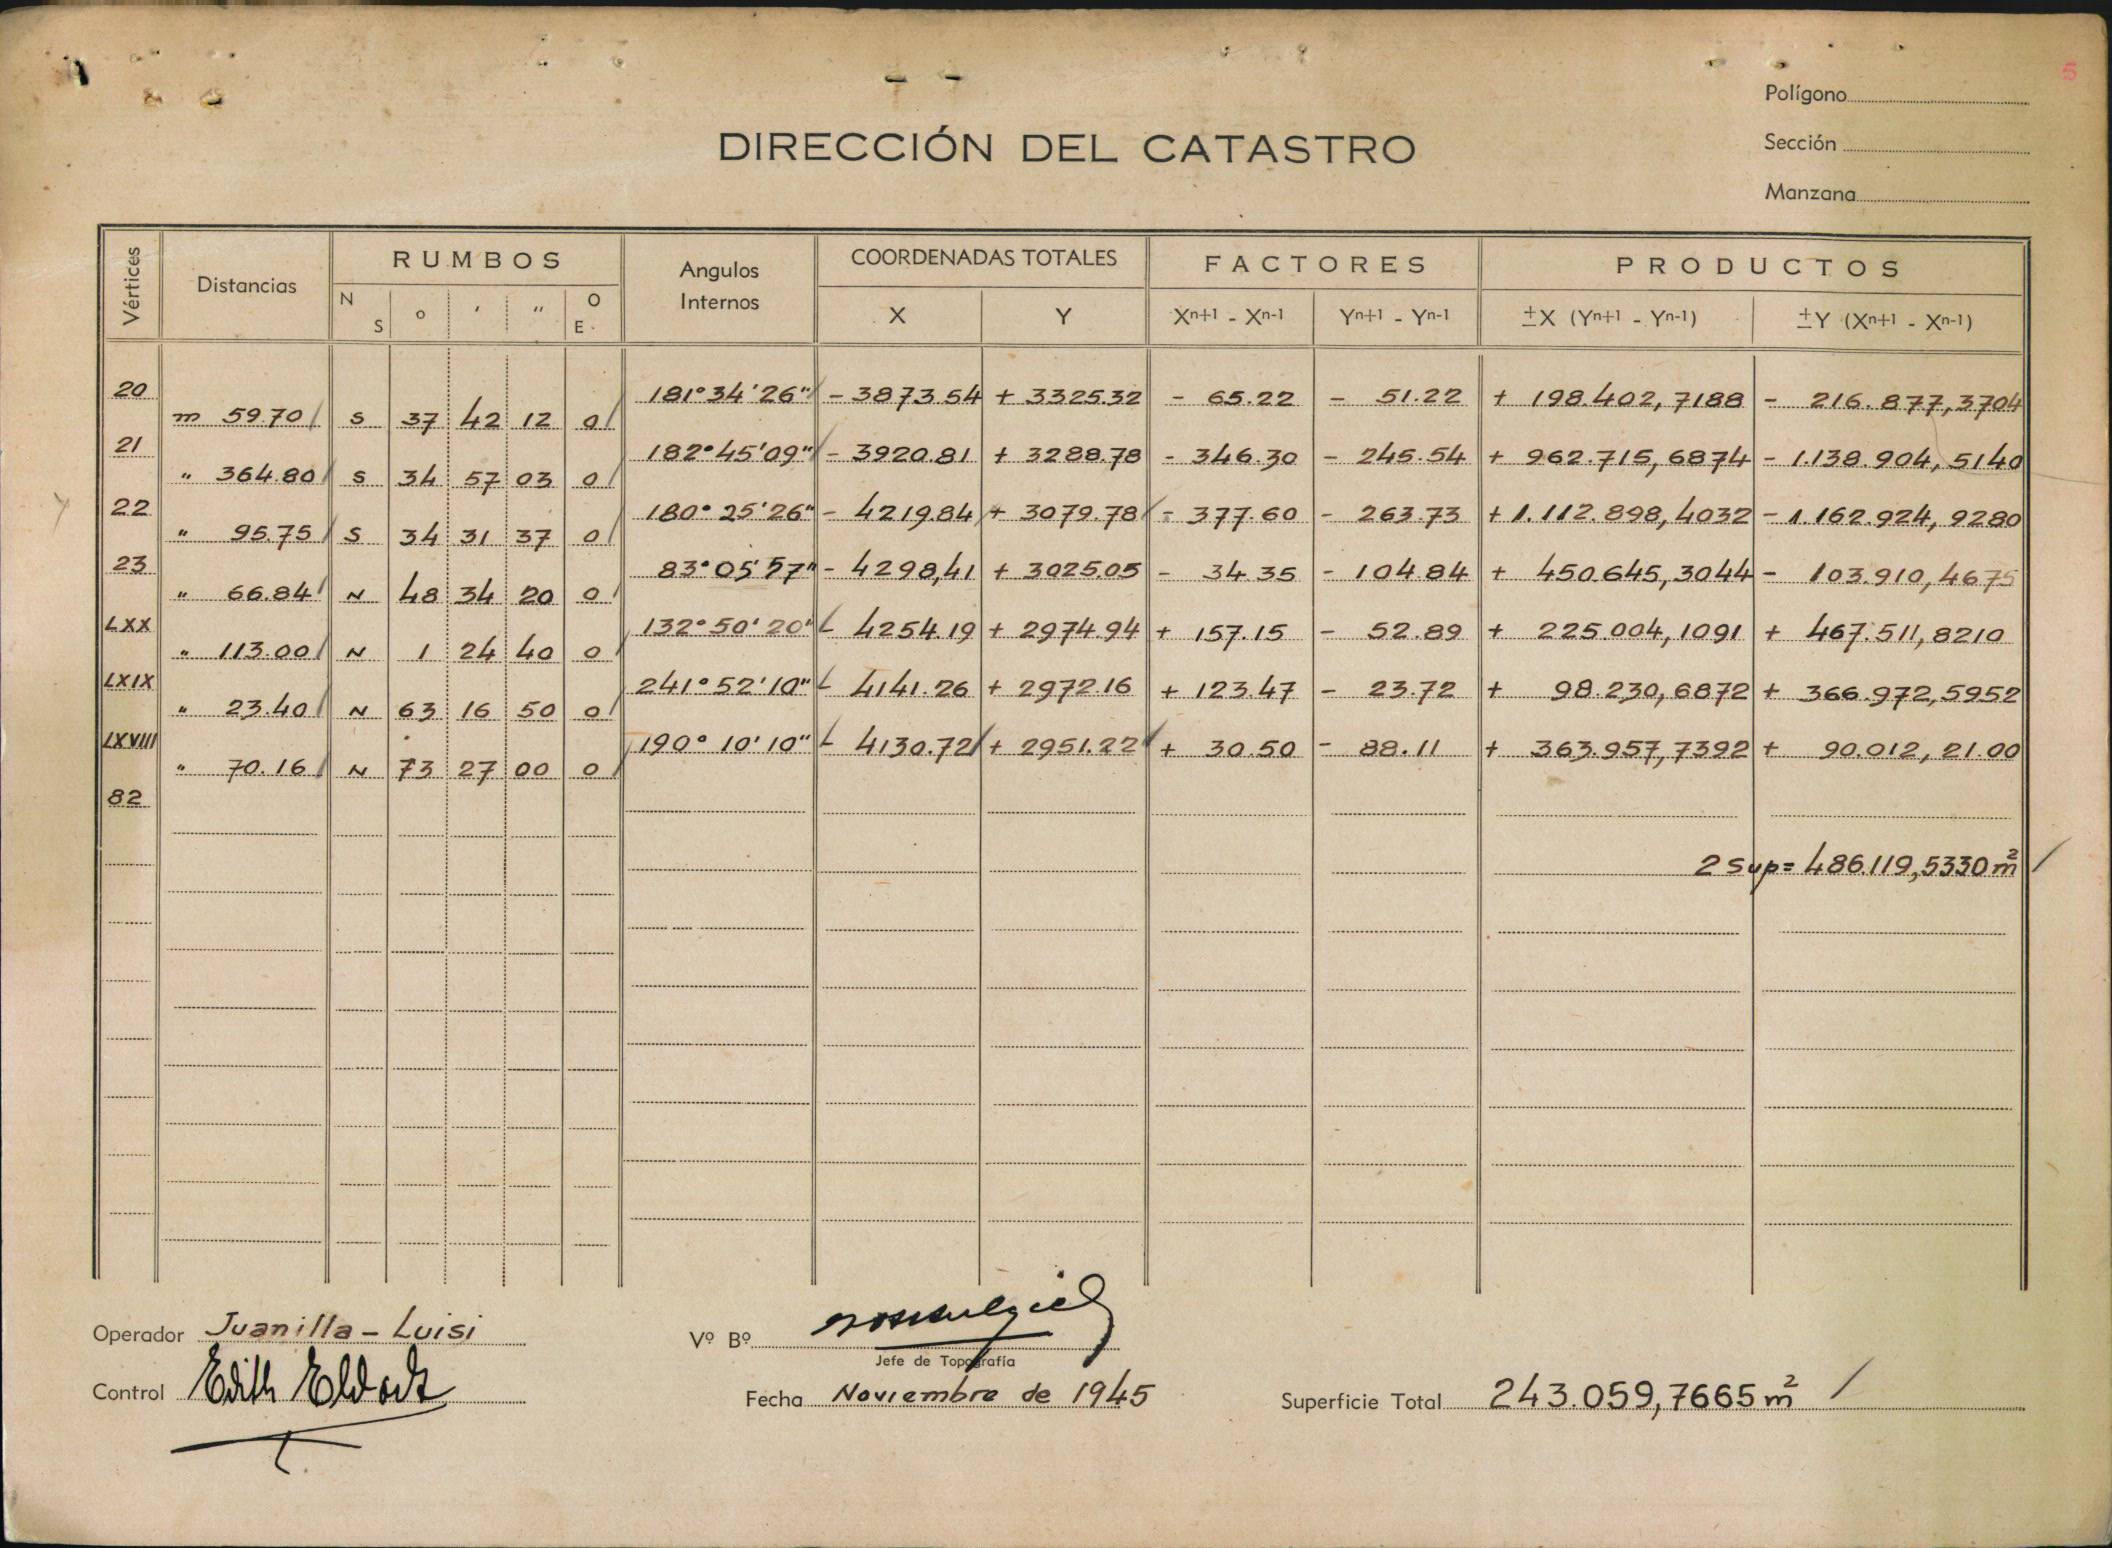 5
Polígono
Sección
Manzana
DIRECCIÓN DEL CATASTRO
Vértices Distancias RUMBOS Angulos Internos COORDENADAS TOTALES FACTORES PRODUCTOS
N S o ' " O E. X Y Xn+1 - Xn-1 Yn+1 - Yn-1 ±X (Yn+1 - Yn-1) ±Y (Xn+1 - Xn-1)
20 181°34'26" - 3873.54 + 3325.32 - 65.22 - 51.22 + 198.402,7188 - 216.877,3704
m 59.70 S 37 42 12 O
21 182°45'09" - 3920.81 + 3288.78 - 346.30 - 245.54 + 962.715,6874 - 1.138.904,5140
" 364.80 S 34 57 03 O
22 180°25'26" - 4219.84 + 3079.78 - 377.60 - 263.73 + 1.112.898,4032 - 1.162.924,9280
" 95.75 S 34 31 37 O
23 83°05'57" - 4298,41 + 3025.05 - 34.35 - 104.84 + 450.645,3044 - 103.910,4675
" 66.84 N 48 34 20 O
LXX 132°50'20" - 4254.19 + 2974.94 + 157.15 - 52.89 + 225.004,1091 + 467.511,8210
" 113.00 N 1 24 40 O
LXIX 241°52'10" - 4141.26 + 2972.16 + 123.47 - 23.72 + 98.230,6872 + 366.972,5952
" 23.40 N 63 16 50 O
LXVIII 190°10'10" - 4130.72 + 2951.22 + 30.50 - 88.11 + 363.957,7392 + 90.012,21.00
" 70.16 N 73 27 00 O
82
2 Sup = 486.119,5330 m²
Operador Juanilla - Luisi
Vº Bº
Jefe de Topografía
Control Edith
Fecha Noviembre de 1945
Superficie Total 243.059,7665 m²